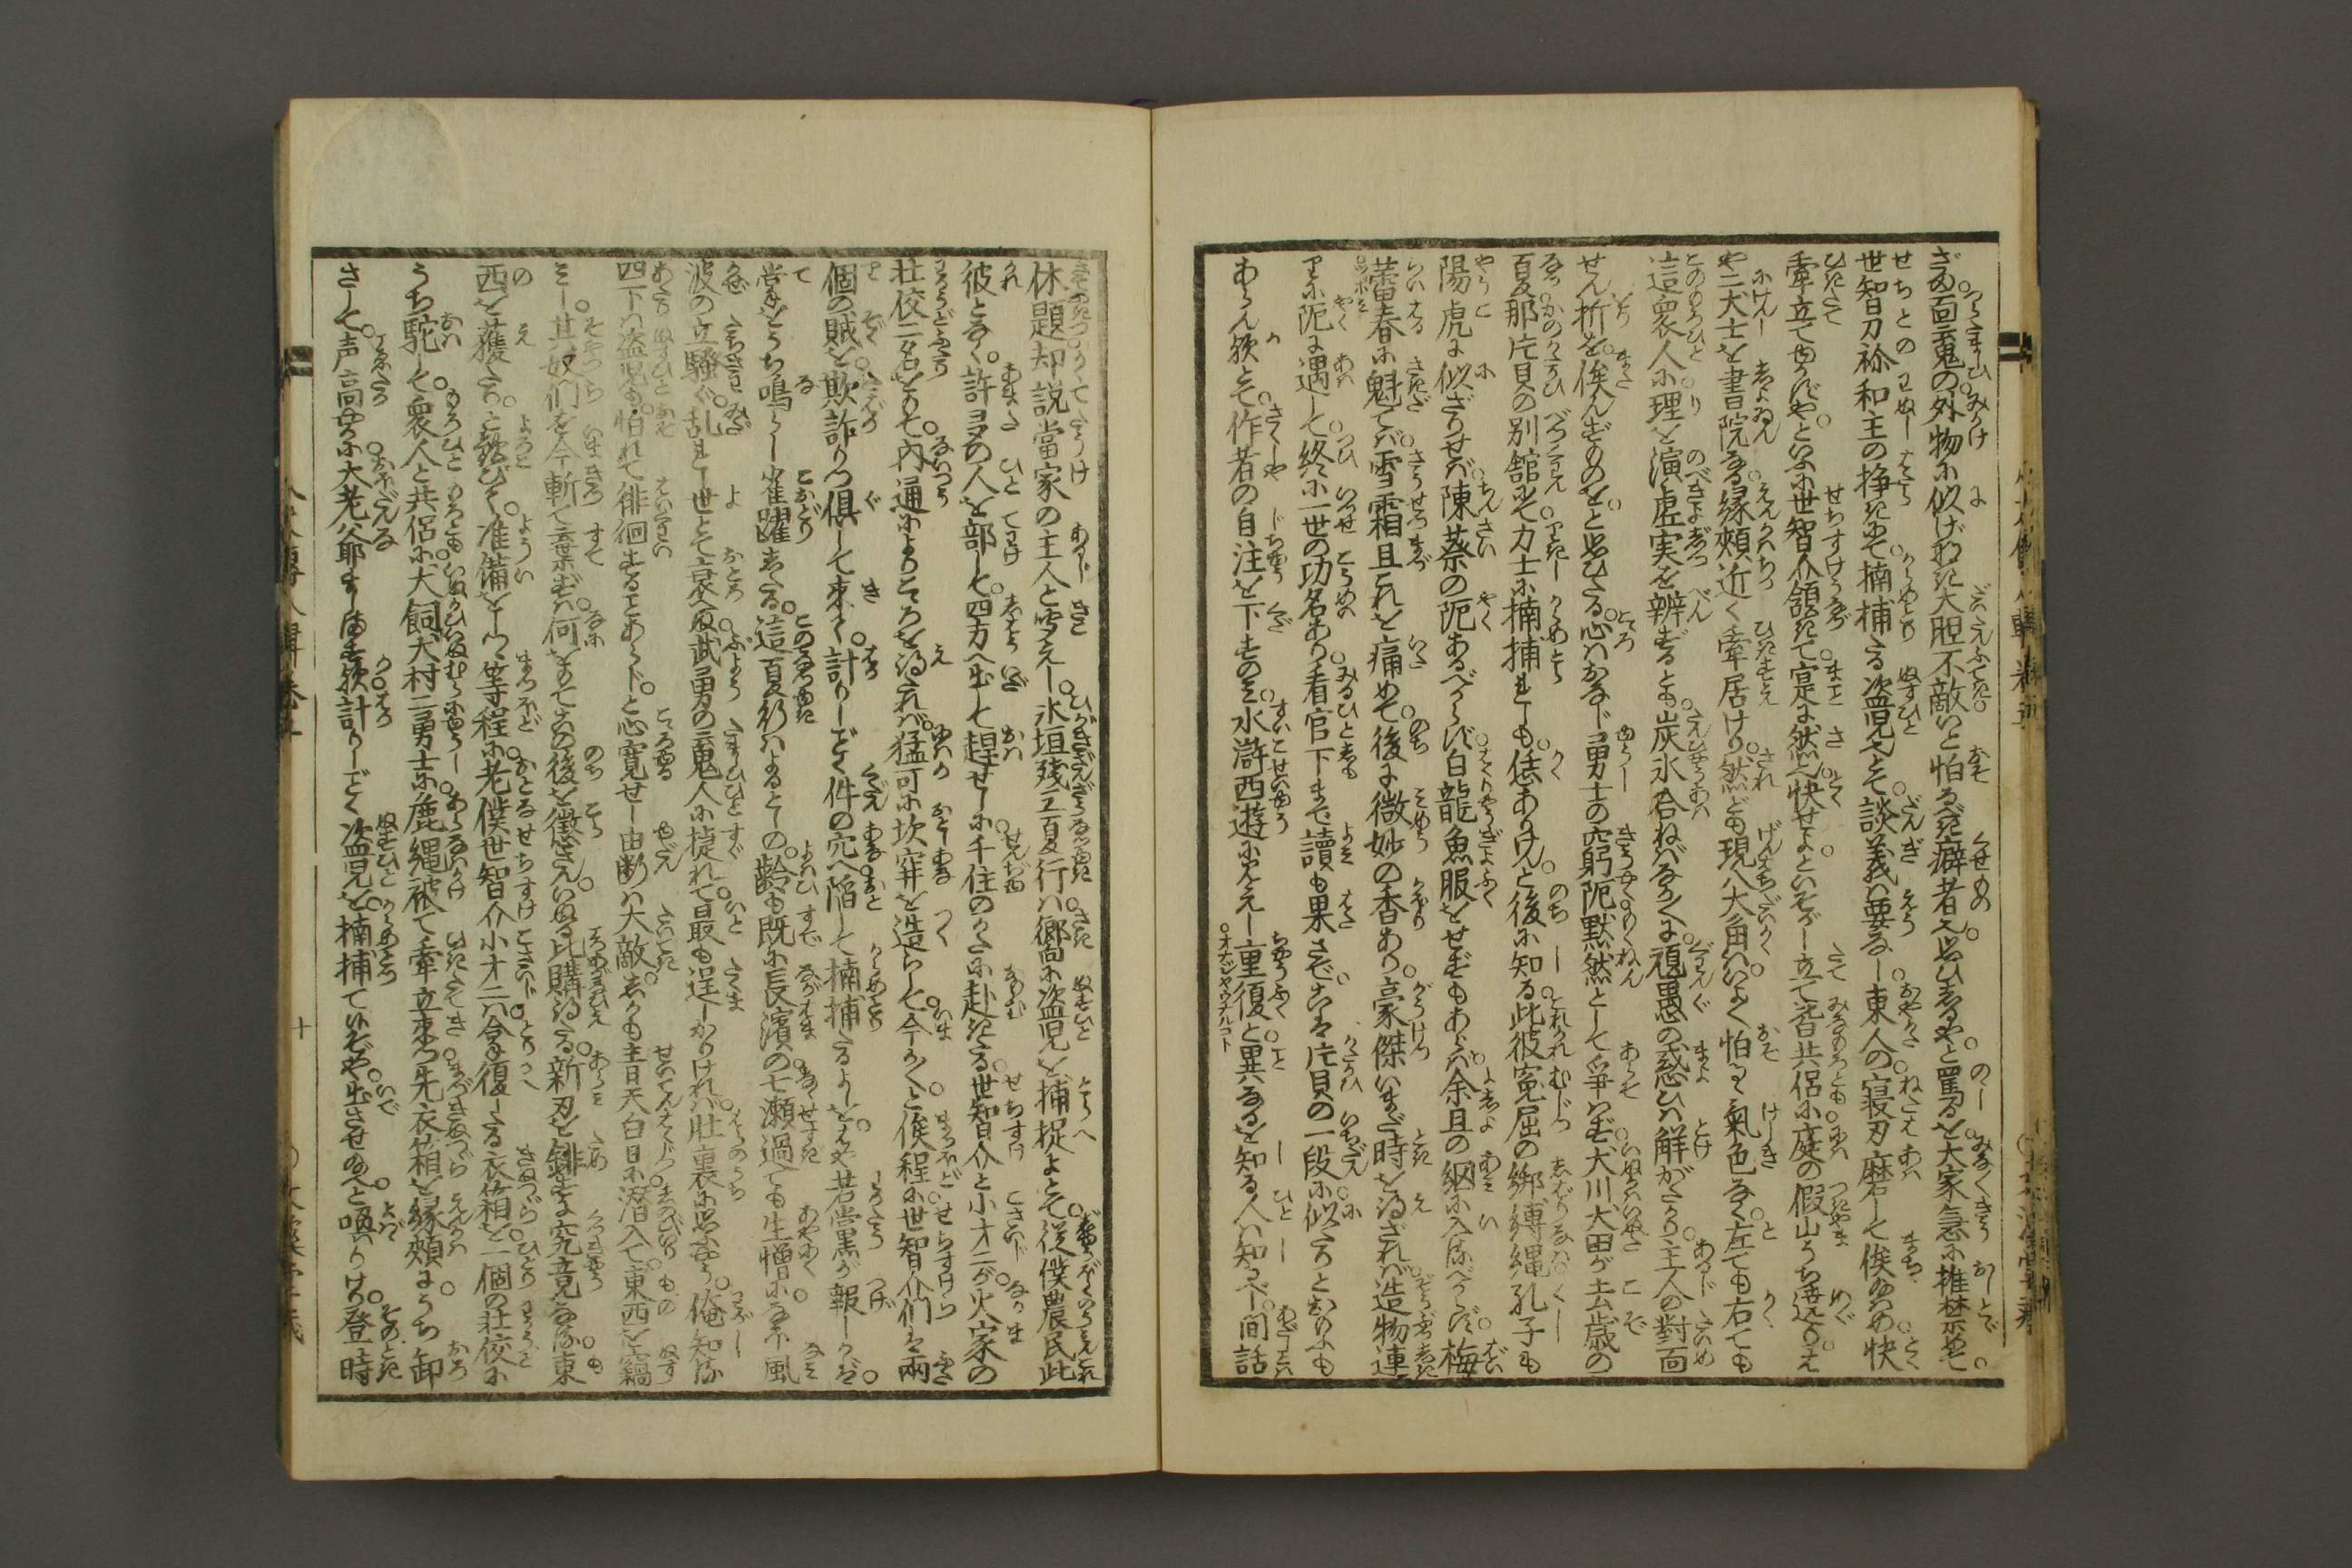 ざめ。面魂の外物に似げなき。大胆不敵いと怕るべき癖者也。思ひきるや。と罵るを。大家急に推禁めて。
世智刀祢和主の挣きにて。搦捕たる盗児也とも。談義は要なし。東人の。寝刃磨して俟給はめ。快
牽立て給はずや。といふに世智介頷きて。寔に然也。快せよといそがし立て。皆共侶に庭の假山うち遶り。
や二犬士を書院なる。縁頬近く牽居けり。然ども現八大角は。いよいよ怕るる氣色なく。左ても右ても
這衆人に。理を演虚実を辨ずるとも。炭氷合ねばなかなかに。頑愚の惑ひは解がたかり。主人の對面
せん折を。俟んずものを。と思ひたる。心はおなじ勇士の窮阨。黙然として爭はず。犬川犬田が去歳の
夏。那片貝の別舘にて。力士に搦捕れしも。恁ありけん。と後に知る。此彼寃屈の绑縛縄。孔子も
陽虎に似ざりせば。陳蔡の阨あるべからず。白龍魚服をせずもあらば。余且の網に入るべからず。梅
蕾春に魁ては。雪霜且これを痛めて。後に微妙の香あり。豪傑いまだ時を得ざれば。造物連
りに阨に遇して。終に一世の功名あり。看官下まで讀も果さで。こは片貝の一段に。似たりとおもふも
あらん歟とて。作者の自注を下すのみ。水滸西遊に見えし重復と。異なるを知る人は知るべし。間話
休題。却説當家の主人と聞えし。氷垣残三夏行は。郷向に盗児を。捕捉よとて。従僕農民此
彼となく。許多の人を部して。四方へ出して趕せしに。千住のかたに赴きたる。世智介と小才二が。火家の
壮佼二名をもて。内通によりところを得たれば。猛可に坎穽を造らして。今か今かと俟程に。世智介們は。兩
個の賊を欺詐りつ。倶して来て。計りしごとく件の穴へ。陥して搦捕たるよしを。はや若黨黒が報しかば。
掌をうち鳴らし雀躍したる。這夏行はよるとしの。齢も既に長濱の。七瀬過ても生憎になほ風
波の立騒ぐ。乱れし世とて衰へぬ。武勇の魂人に捷れて。最も逞しかりければ。壮裏に思ふやう。俺知る
四下は盗児も。怕れて徘徊することあらじ。と心寛せし由断は大敵。しかも青天白日に。潜入て。東西を竊
みし。其奴們を今斬て棄ずは。何をもてその後を懲さん。いぬる比購得たる。新刃を試すは究竟なる。東
西を獲たり。と歓びて。准備をしつつ等程に。老僕世智介小才二は。拿復したる衣箱を。一個の壮佼に
うち駝して。衆人と共侶に。犬飼犬村二勇士に。麁縄被て牽立来つ。先衣箱を縁頬に。うち卸
さして。声高やかに。大老父耶まします歟。計りしごとく盗児を。搦捕て候ぞや。出させ給へ。と喚りけり。登時